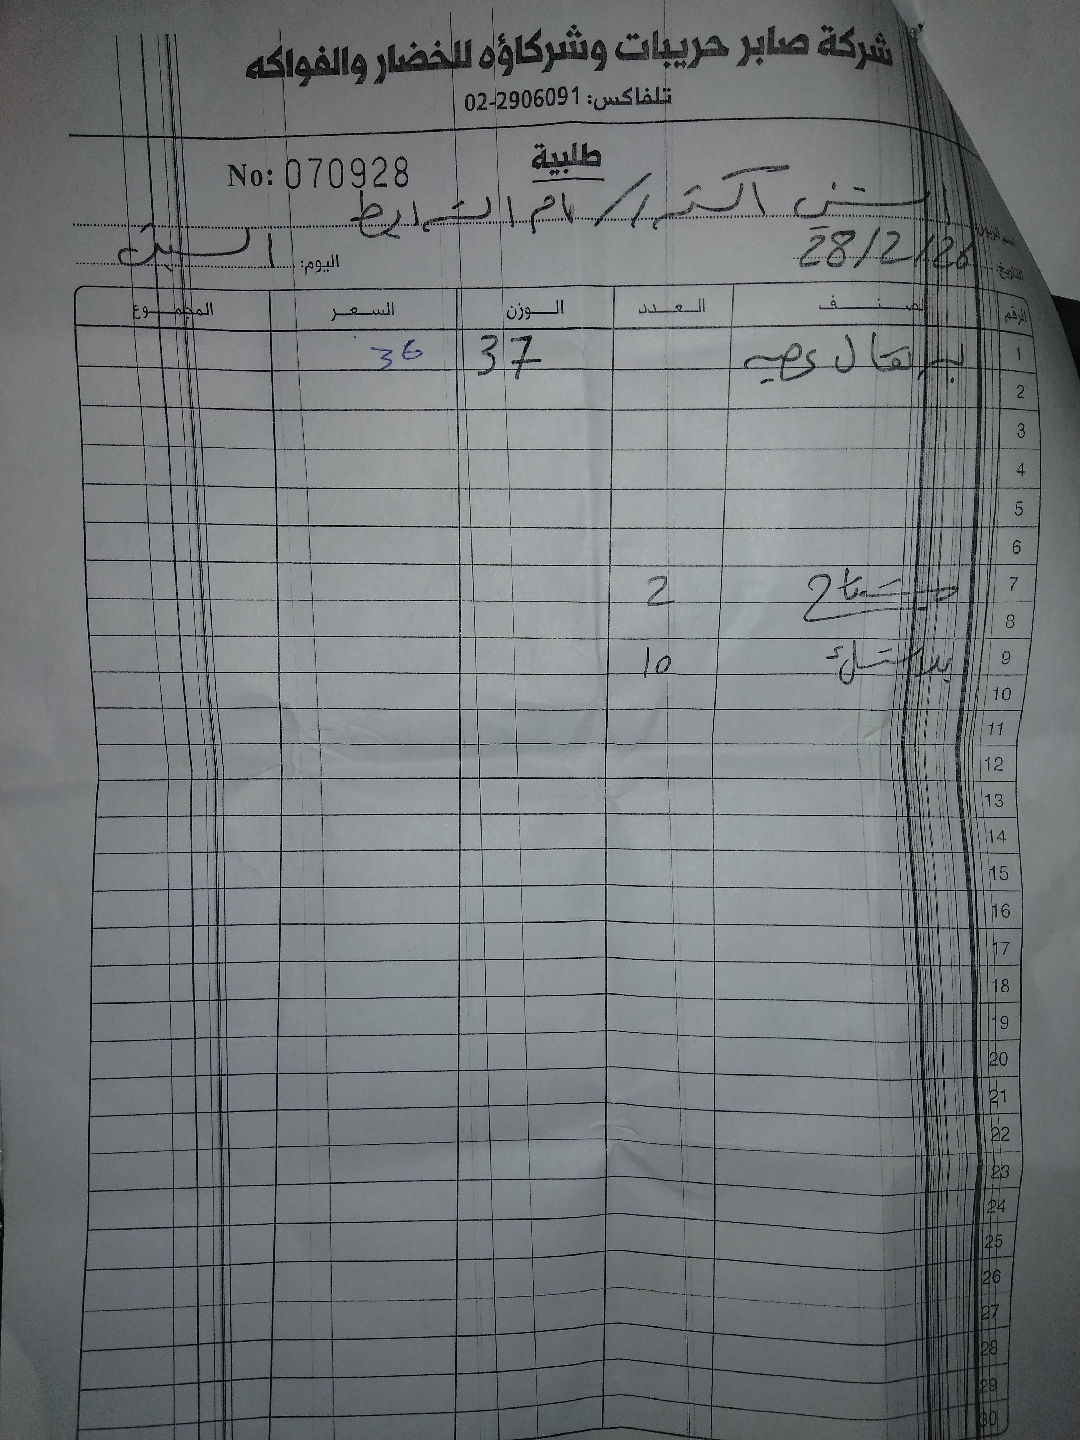 شركة صابر حريبات وشركاؤه للخضار والفواكه
تلفاكس: 02-2906091
طلبية
No: 070928
ام الشرايط
التاريخ: 28/2/26 اليوم: السبت
الرقم الصنف العدد الوزن السعر المجموع
1 برتقال 37 36
2
3
4
5
6
7 مشتاح 2
8
9 بلاستك 10
10
11
12
13
14
15
16
17
18
19
20
21
22
23
24
25
26
27
28
29
30